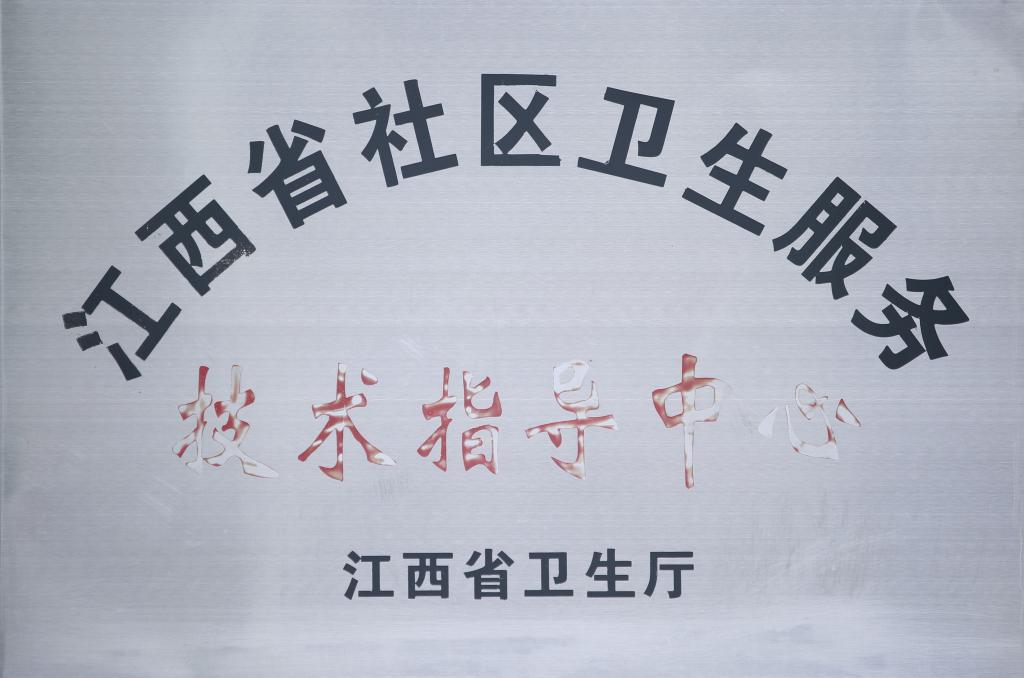 江西省社区卫生服务
技术指导中心
江西省卫生厅